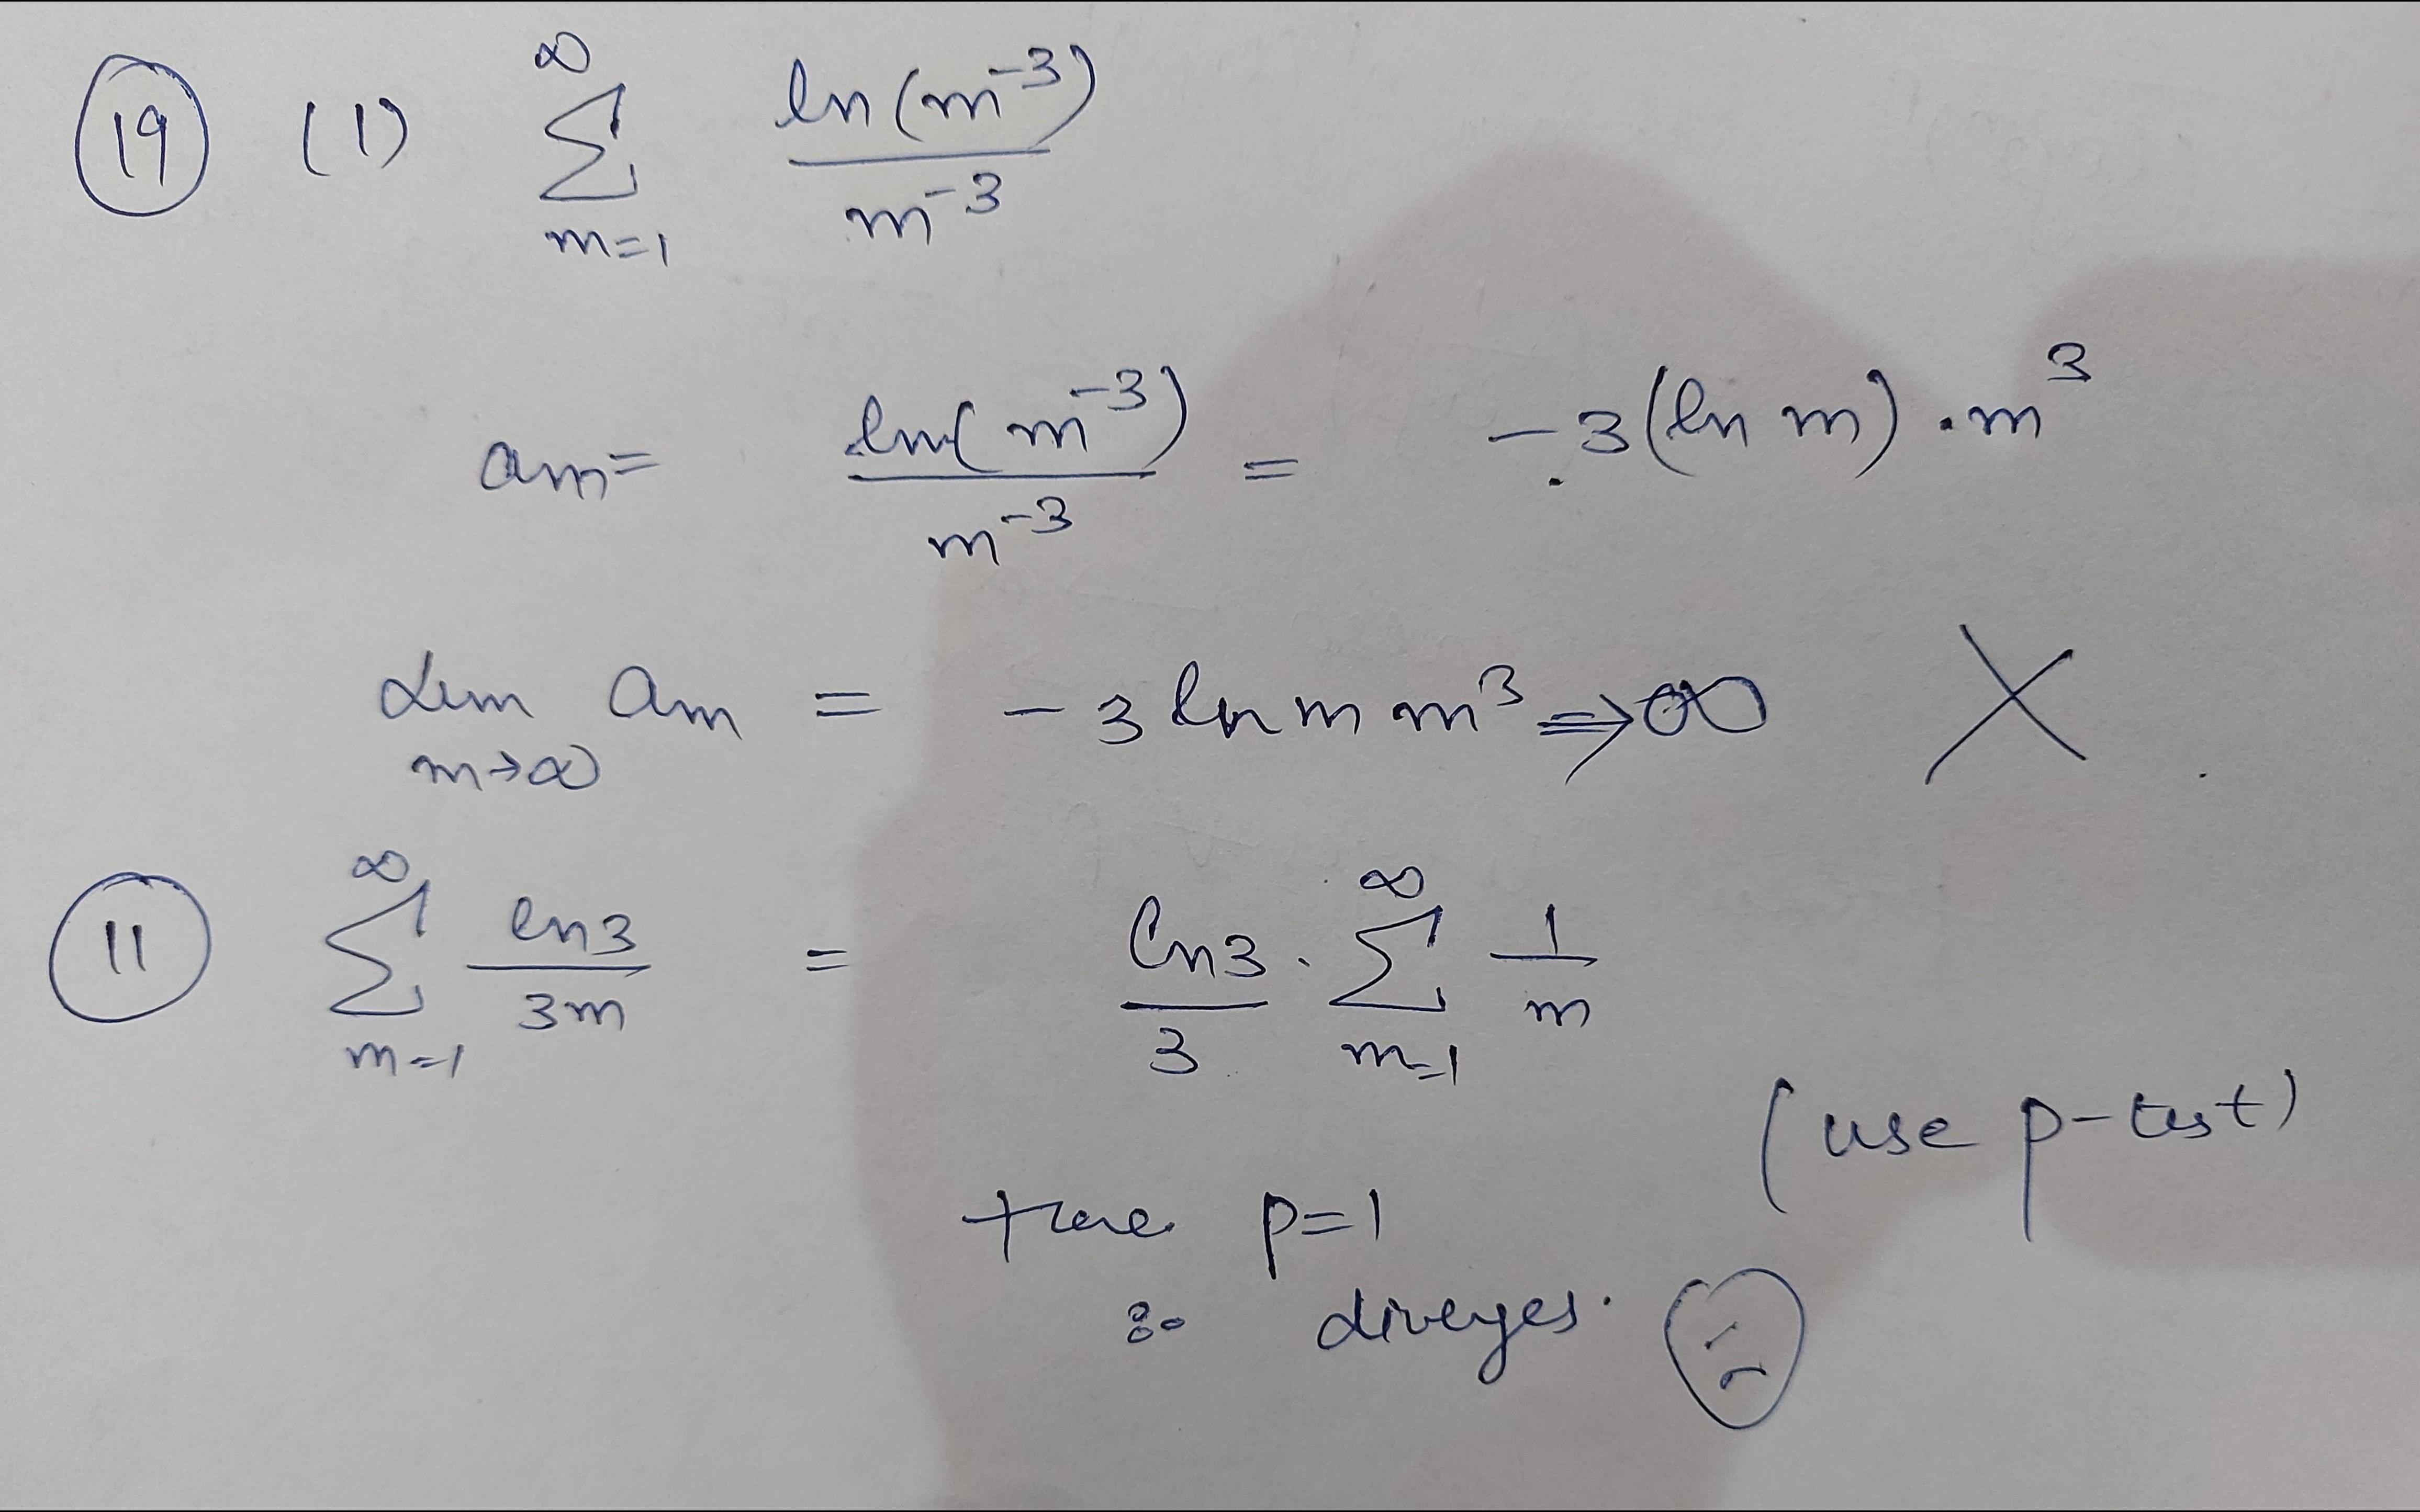 19 (1) ∞ ∑ m=1 ln(m⁻³) / m⁻³
am = ln(m⁻³) / m⁻³ = -3(ln m) . m³
Lim m→∞ am = -3 ln m m³ ⇒ ∞ X
11 ∞ ∑ m=1 ln3 / 3m = ln3 / 3 . ∞ ∑ m=1 1 / m
(use p-test)
p=1
∴ diverges.